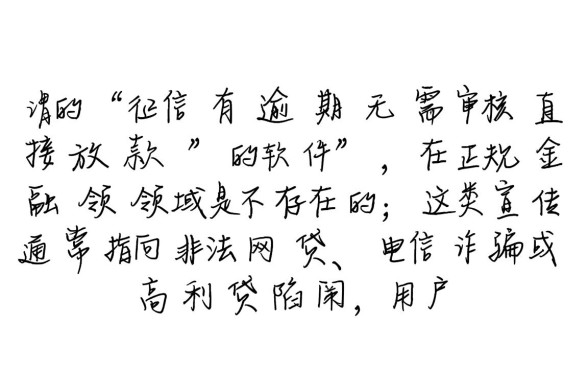 谓的“征信有逾期无需审核直
接放款”的软件”，在正规金
融领领域是不存在的；这类宣传
通常指向非法网贷、电信诈骗或
高利贷陷阱，用户